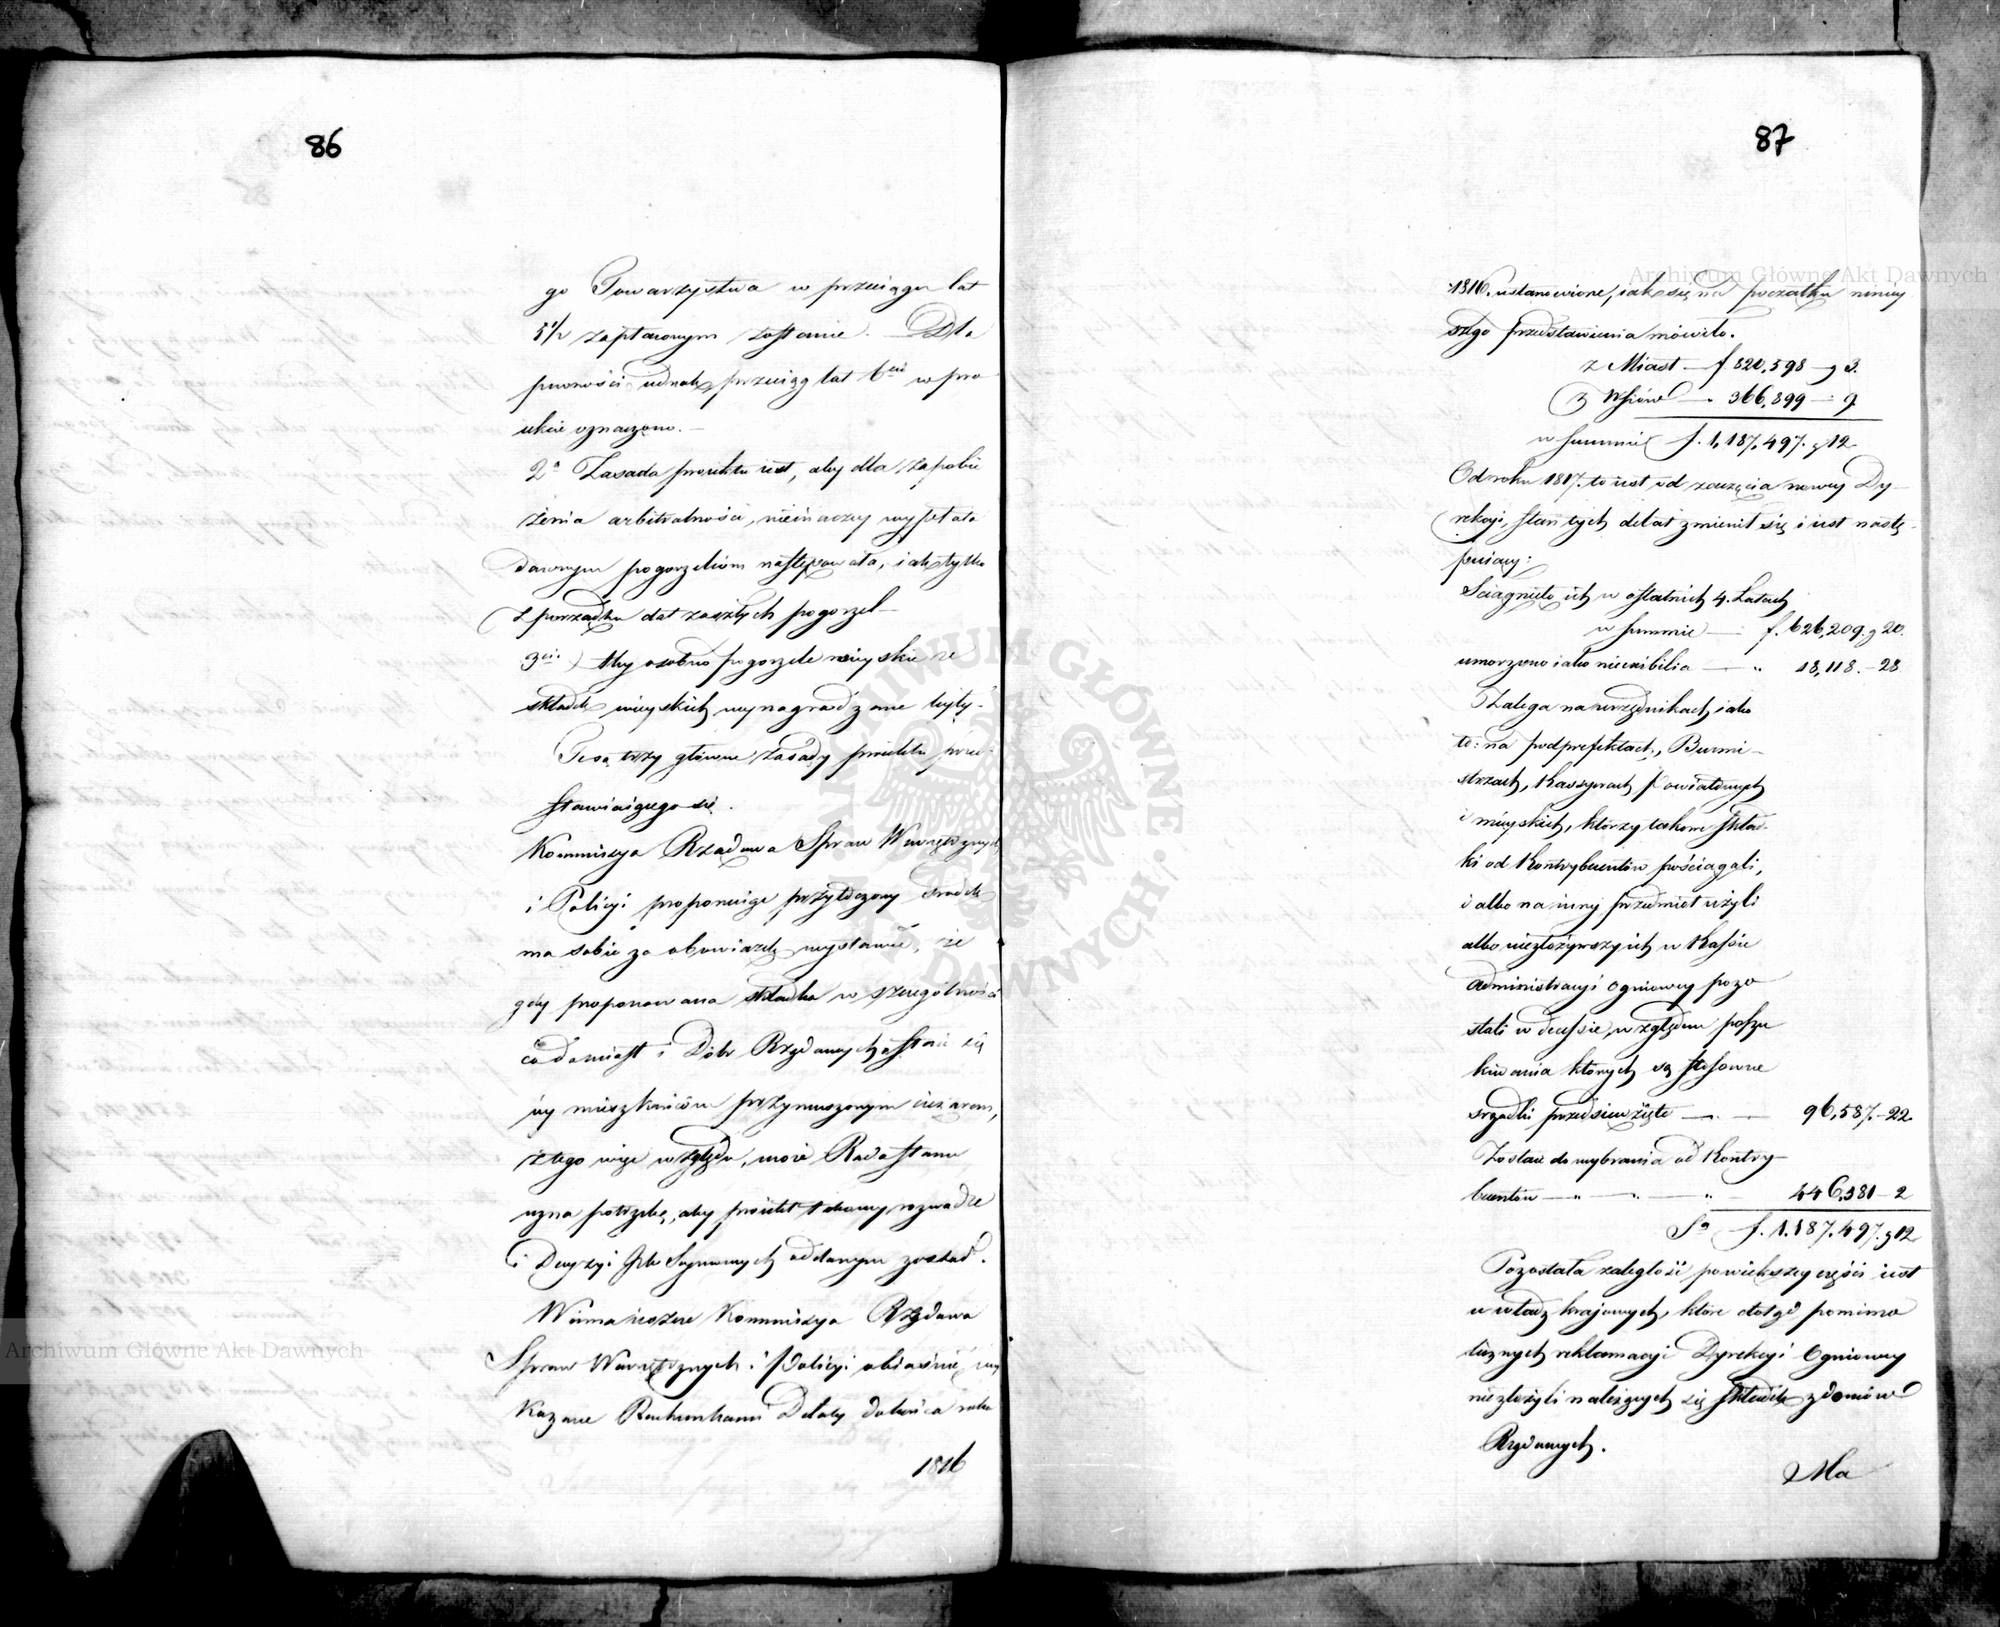 86
go Towarzystwa w przeciągu lat
5½ zapłaconym zostanie. — Dla
pewności iednak przeciąg lat 6ciu w pro
iekcie oznaczono. —
2a Zasada proiektu iest, aby dla zapobie
żenia arbitralności, nieinaczey wypłata
dawnym pogorzelcom następowała, iak tylko
z porządku dat zaszłych pogorzel —
3cie) Aby osobno pogorzele mieyskie ze
składek mieyskich wynagradzane były. —
Te są trzy główne zasady proiektu prze
stawiaiącego się.
Kommissya Rządowa Spraw Wewnętrznych
i Policyi proponuiąc przyłączony środek
ma sobie za obowiązek wystawić, że
gdy proponowana składka w szczególności
co do miast i Dóbr Rządowych staie się
ich mieszkańców przymuszonym ciężarem,
z tego więc względu, może Rada Stanu
uzna potrzebę, aby proiekt takowy rozwadze
i Decyzyi Izb Seymowych oddanym został.
Winna ieszcze Kommissya Rządowa
Spraw Wewnętrznych i Policyi obiaśnić, wy
kazane Rachunkami Defekty do końca roku
1816
87
1816. ustanowione, iak się na początku niniey
szego przedstawienia mówiło.
z Miast — f. 820,598 — g 3.
z Wsiów — " 366,899 — : 9.
w Summie f. 1,187,497. g 12.
Od roku 1817. to iest od zaczęcia nowey Dy—
rekcyi, stan tych defat zmienił się i iest nastę—
puiący:
Sciągnięto ich w ostatnich 4. Latach
w Summie — f. 626,209. g 20.
umorzono iako niexibilia — " 18,118. — 28
Zalega na urzędnikach iako
to: na podprefektach, Burmi—
strzach, Kassyerach Powiatowych
i mieyskich, którzy takowe skład
ki od Kontrybuentów pościągali,
i albo na inny przedmiot użyli
albo niezłożywszy ich w Kassie
Administracyi Ogniowey pozo
stali w decessie, względem poszu
kiwania których są stosowne
srzodki przedsiewzięte — — 96,587. — 22.
Zostaie do wybrania od Kontry—
buentów — " — " — " — 446,581 — 2
Sa f. 1.187.497. g 12
Pozostała zaległość powiększey części iest
u władz krajowych, które dotąd pomimo
licznych reklamacyi Dyrekcyi Ogniowey
niezłożyli należących się składek z domów
Rządowych.
Ma
Archiwum Główne Akt Dawnych
Archiwum Główne Akt Dawnych
ARCHIWUM GŁÓWNE AKT DAWNYCH